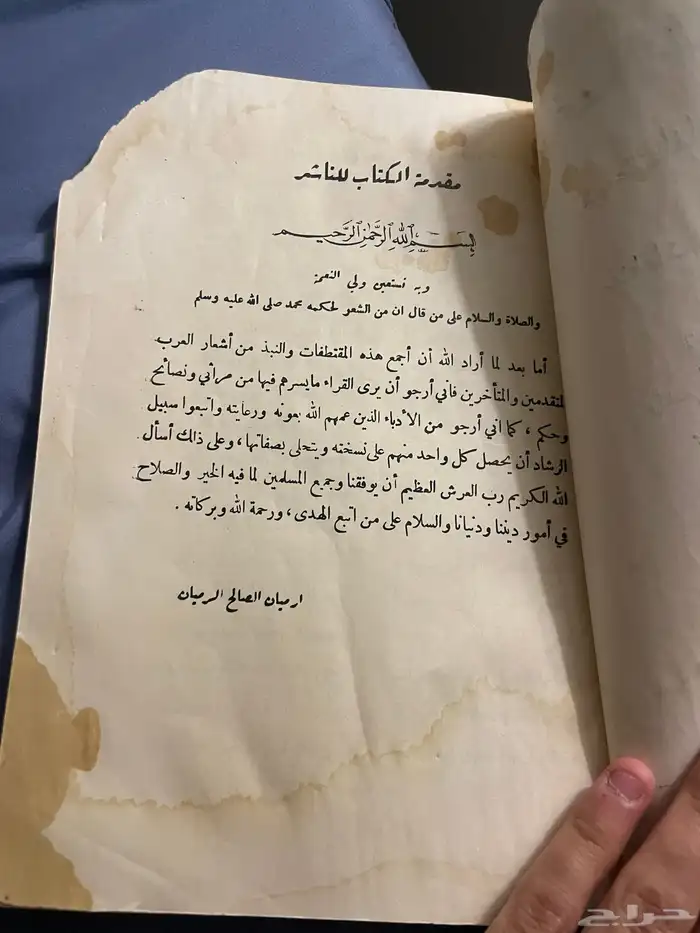 مقدمة الكتاب للناشر
بسم الله الرحمن الرحيم
وبه نستعين ولي النعمة
والصلاة والسلام على من قال ان من الشعر لحكمه محمد صلى الله عليه وسلم
أما بعد لما أراد الله أن أجمع هذه المقتطفات والنبذ من أشعار العرب
المتقدمين والمتأخرين فاني أرجو أن يرى القراء مايسرهم فيها من مرأني ونصائح
وحكم ، كما اني أرجو من الأدباء الذين عمهم الله بعونه ورعايته واتبعوا سبيل
الرشاد أن يحصل كل واحد منهم على نسخته ويتحلى بصفاتها ، وعلى ذالك أسأل
الله الكريم رب العرش العظيم أن يوفقنا وجميع المسلمين لما فيه الخير والصلاح
في أمور ديننا ودنيانا والسلام على من اتبع الهدى ، ورحمة الله وبركاته .
ارميان الصالح الرميان
حراج